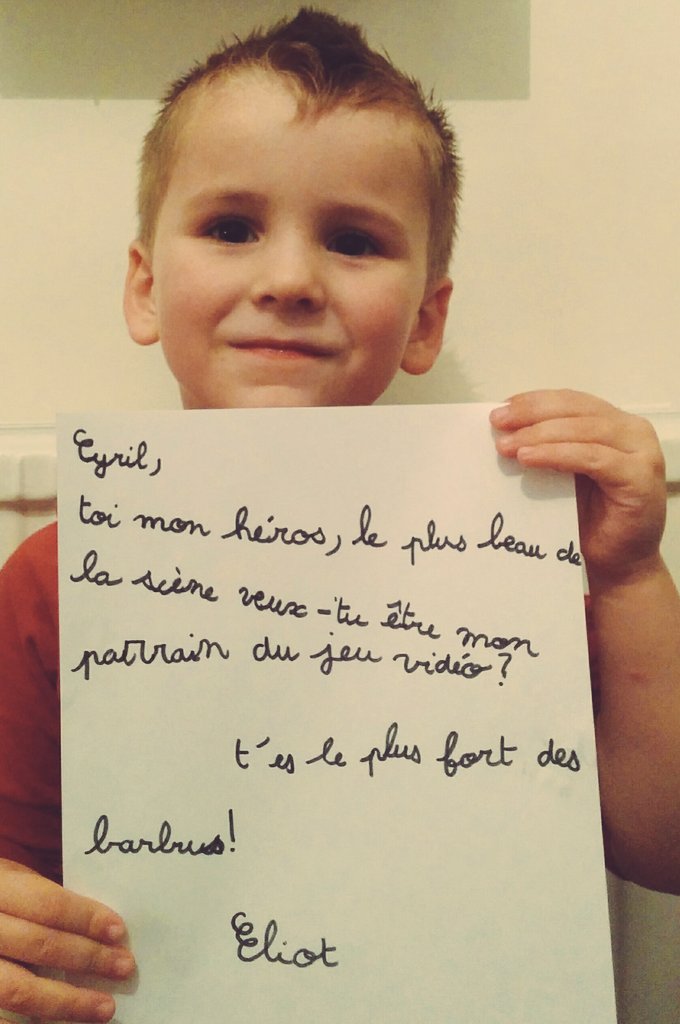 Cyril,
toi mon héros, le plus beau de
la scène veux-tu être mon
parrain du jeu vidéo?
t'es le plus fort des
barbus!
Eliot